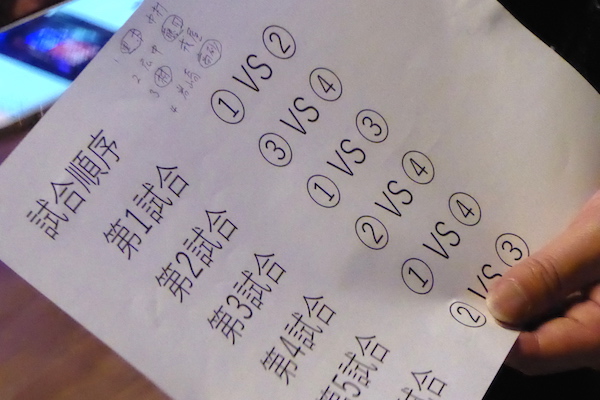 試合順序
第1試合 ① VS ②
第2試合 ③ VS ④
第3試合 ① VS ③
第4試合 ② VS ④
第5試合 ① VS ④
試合 ② VS ③